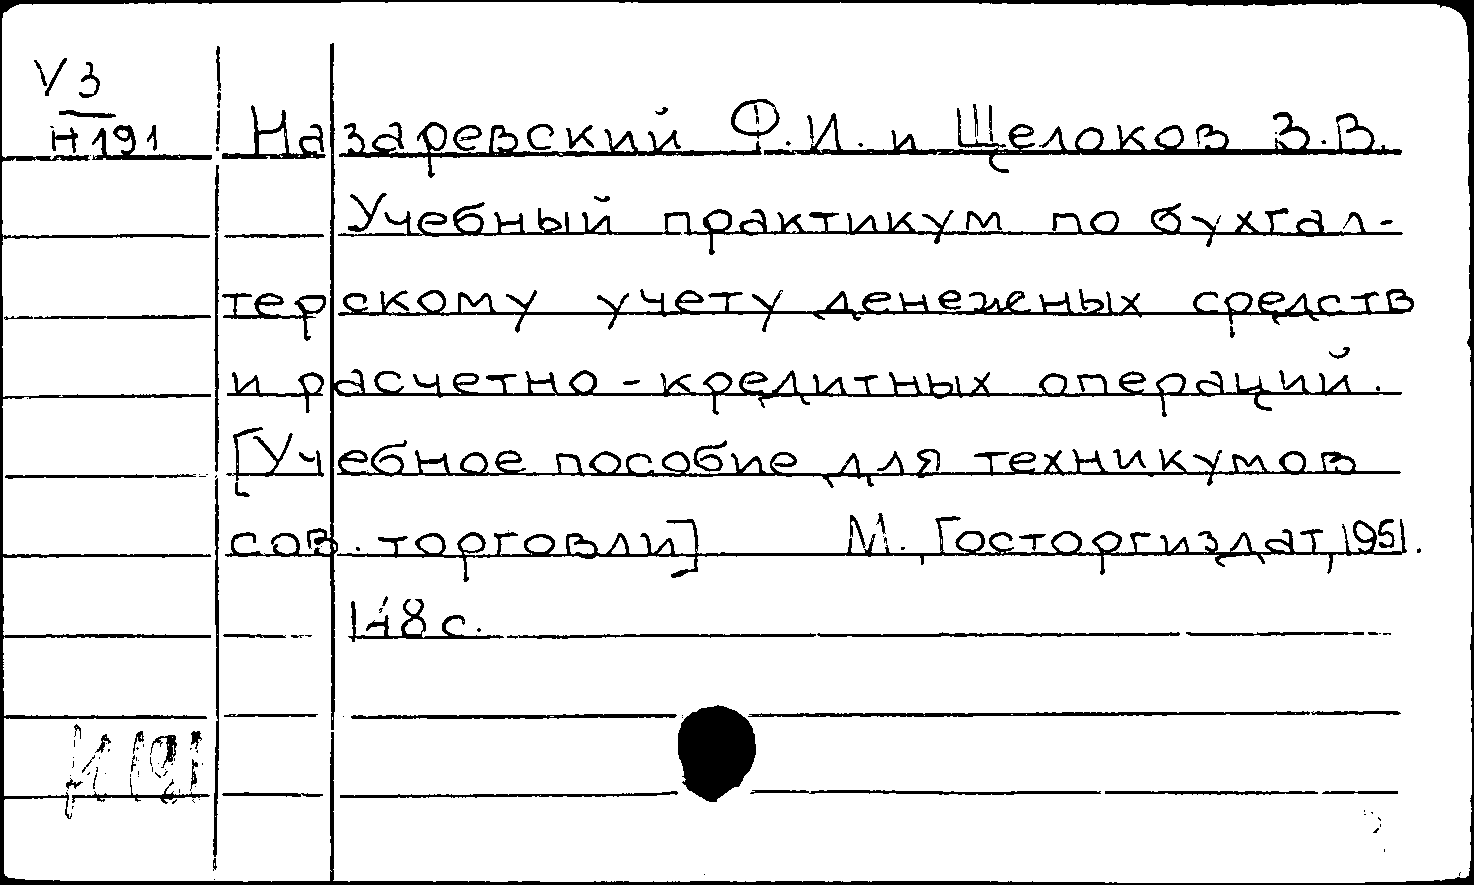 У3
Н191
Назаревский Ф.И. и Щелоков З.В.
Учебный практикум по бухгал-
терскому учету денежных средств
и расчетно-кредитных операций.
[Учебное пособие для техникумов
сов. торговли] М., Госторгиздат, 1951.
148 с.
Н191